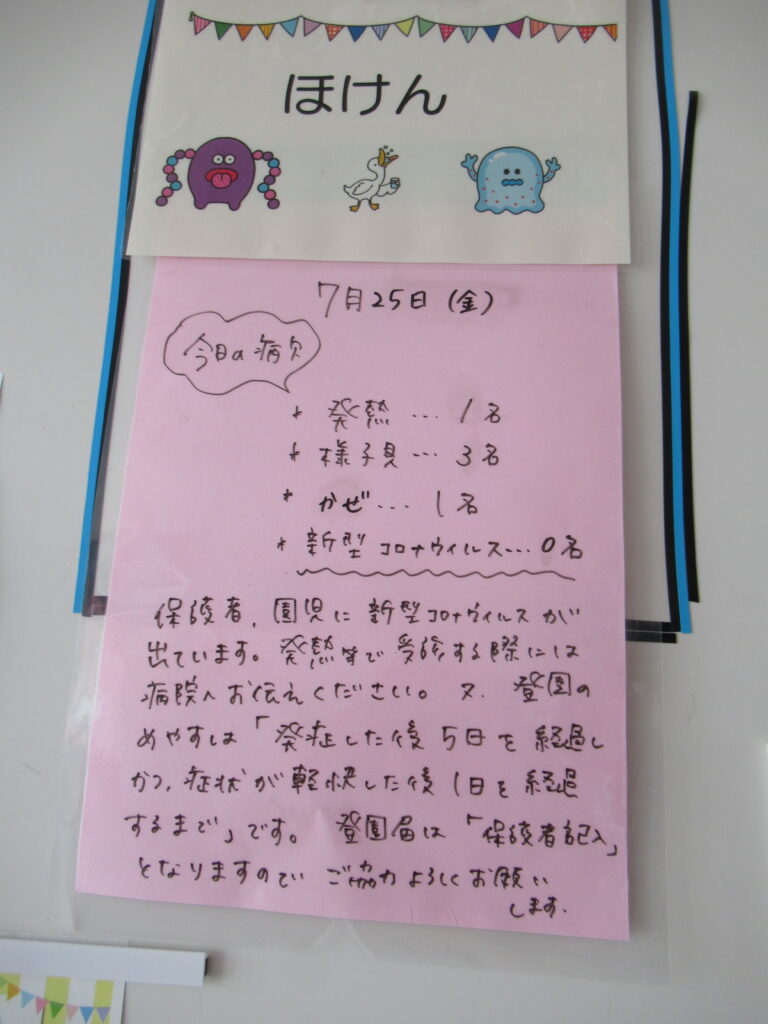 ほけん
7月25日(金)
今日の病欠
* 発熱 … 1名
* 様子見 … 3名
* かぜ… 1名
* 新型コロナウィルス…0名
保護者、園児に新型コロナウィルスが
出ています。発熱等で受診する際には
病院へお伝えください。又、登園の
めやすは「発症した後5日を経過し
かつ、症状が軽快した後1日を経過
するまで」です。登園届は「保護者記入」
となりますのでご協力よろしくお願い
します。